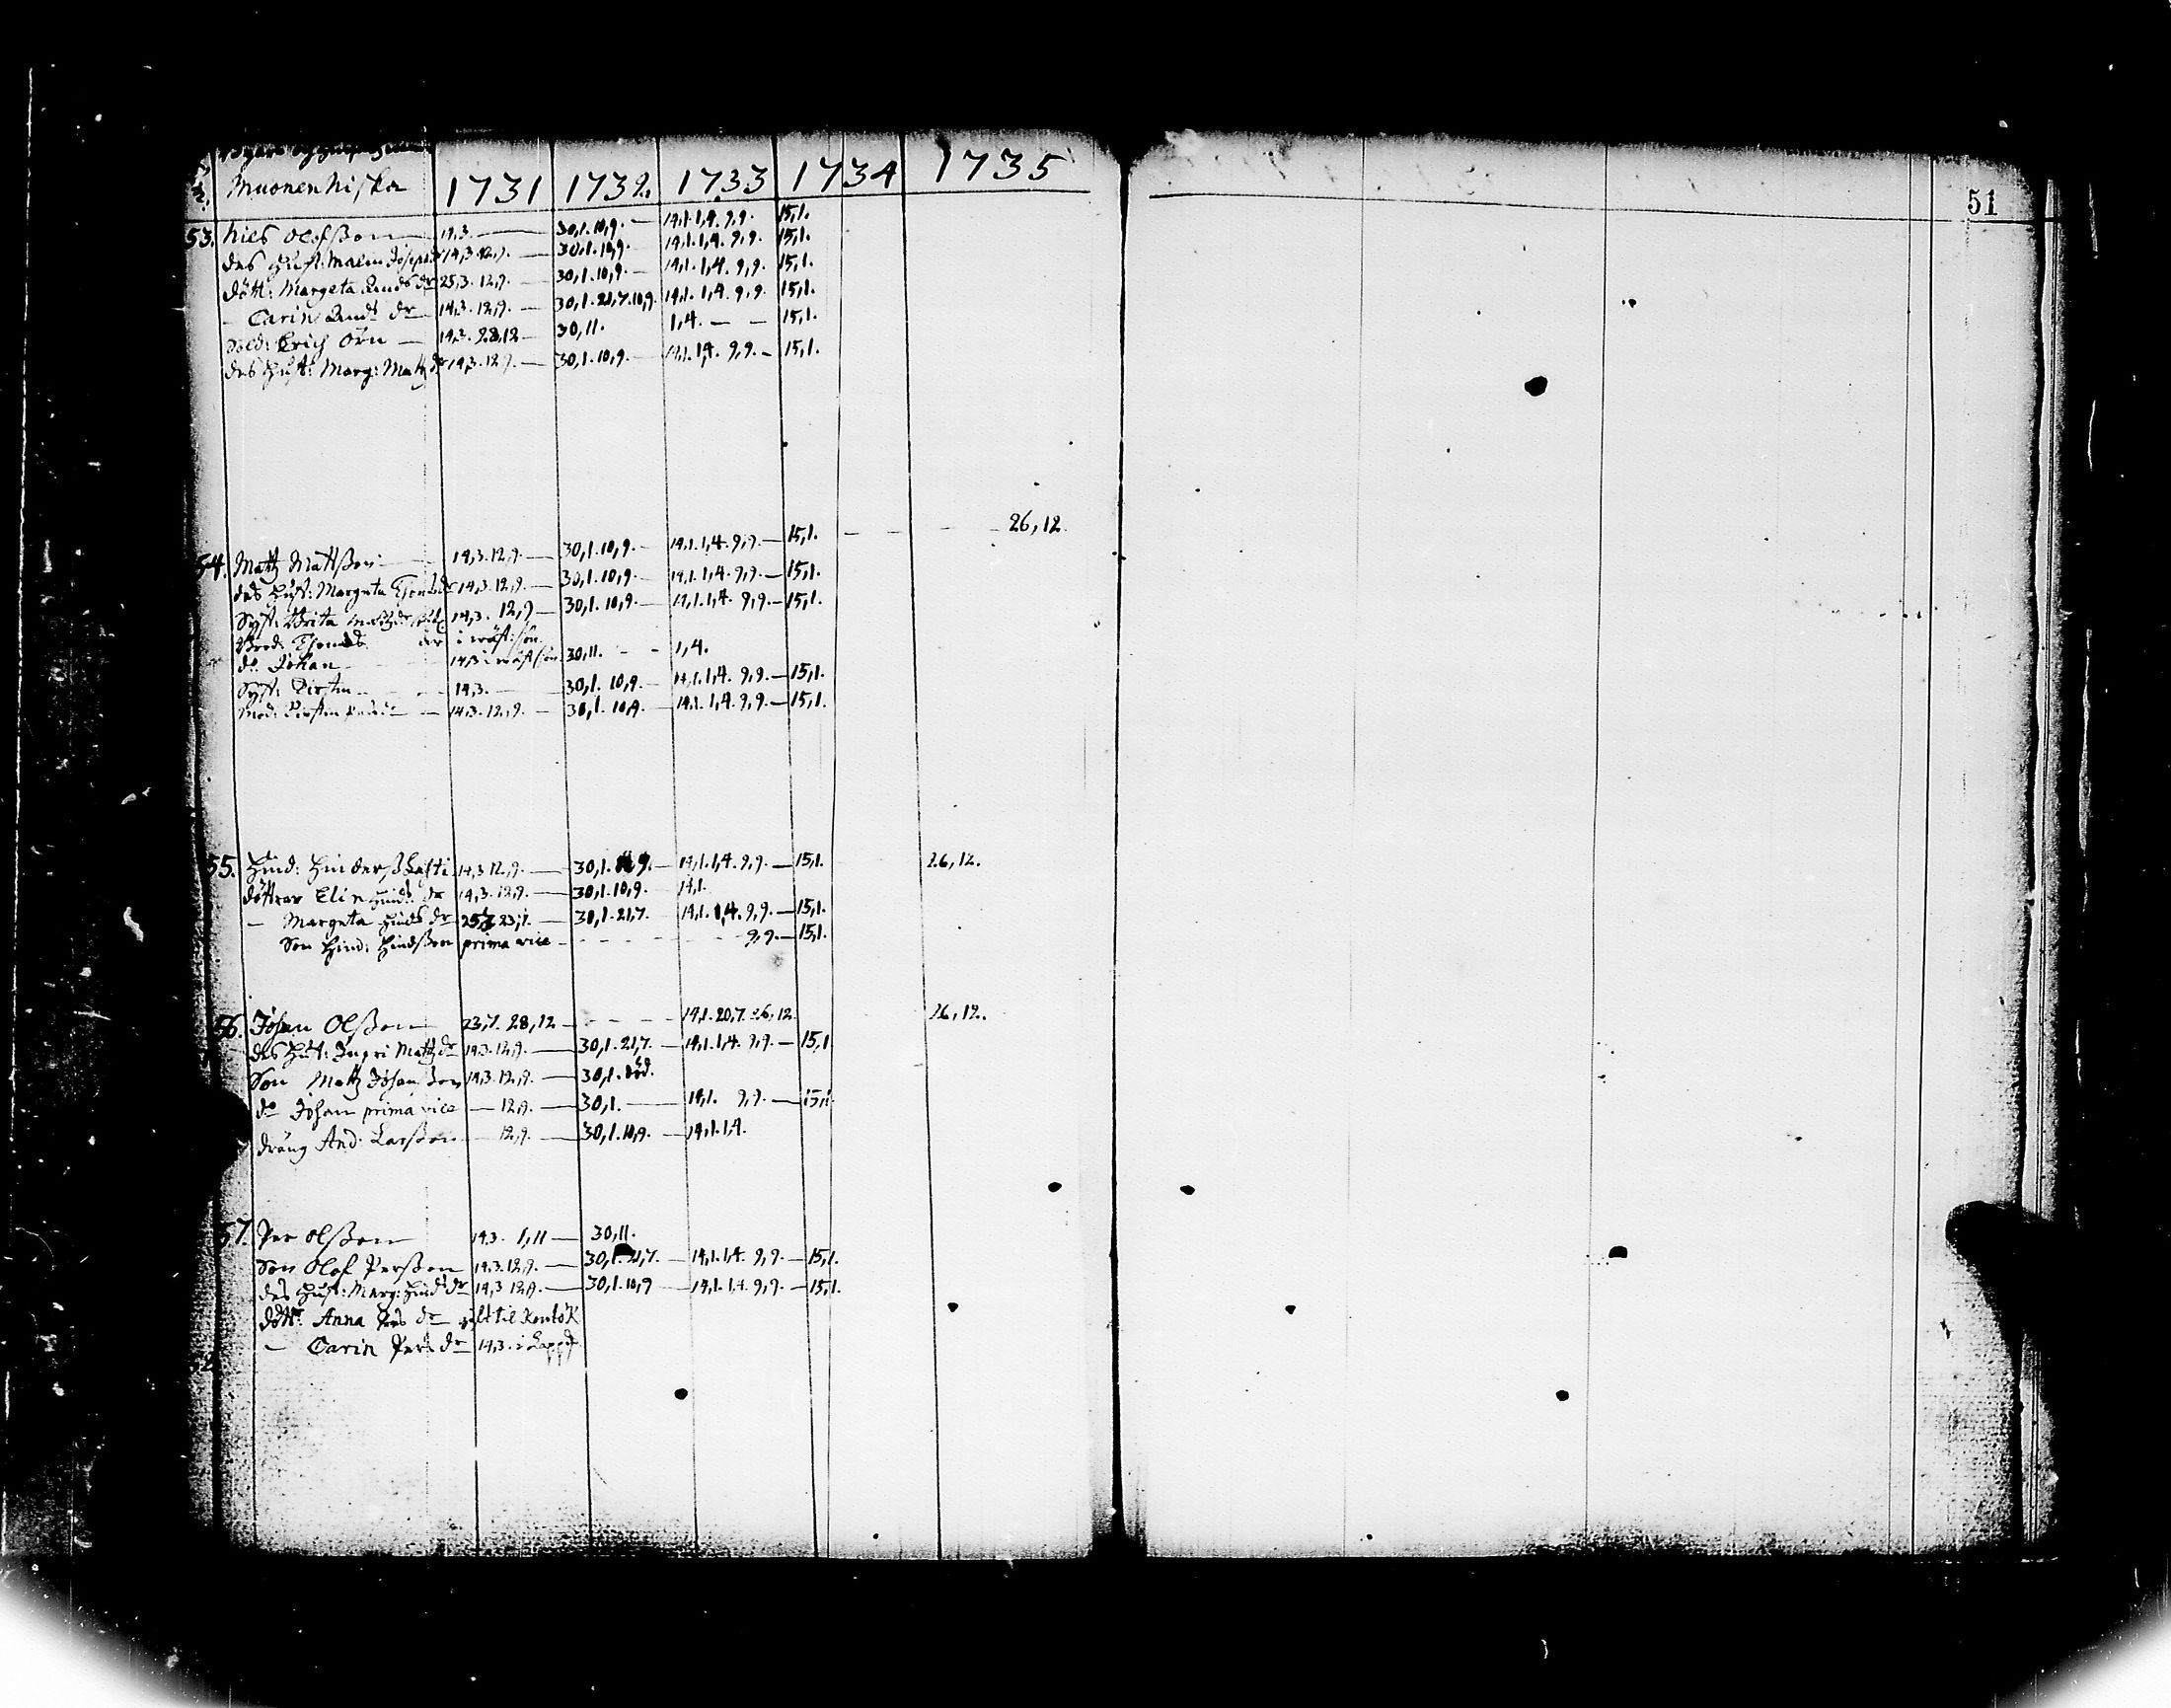 Muonen niska 1731 1732. 1733 1734 1735
51
53. Nils Olofsson 14,3. — 30,1.10,9. — 14,1.1,4. 9,9. 15,1.
des Hust: Malin Josephs 14,3.12,9. — 30,1.10,9. 14,1.1,4. 9,9. 15,1.
dött: Margeta dr 25,3.12,9. — 30,1.10,9. — 14,1.1,4. 9,9. 15,1.
— Carin dr 14,3.12,9. — 30,1.21,7.10,9. 14,1.1,4. 9,9. 15,1.
Sold: Erich Örn — 14,3. 28,12 — 30,11. 1,4. — — 15,1.
des Hust: Marg: Matz dr 14,3.12,9. — 30,1.10,9. — 14,1.1,4. 9,9. — 15,1.
54. Matz Mattsson — 14,3.12,9. — 30,1.10,9. — 14,1.1,4.9,9. — 15,1. — — — 26,12.
des Hust: Margeta dr 14,3.12,9. — 30,1.10,9. — 14,1.1,4.9,9. — 15,1.
Syst: Brita 14,3. 12,9 — 30,1.10,9. — 14,1.1,4. 9,9. — 15,1.
Brod: Thomas är i
do Johan — 14,3 i 30,11. — — 1,4.
Syst: Kirstin — — 14,3. — 30,1.10,9. — 14,1.1,4. 9,9. — 15,1.
Mod: Kirstin — 14,3.12,9. — 30,1.10,9. — 14,1.1,4.9,9. — 15,1.
55. Hind: Hinderss 14,3.12,9. — 30,1. 9. — 14,1.1,4.9,9. — 15,1. 26,12.
döttrar Elin Hinds dr 14,3.12,9. — 30,1.10,9. 14,1.
— Margeta Hinds dr 23,7. — 30,1.21,7. 14,1.1,4.9,9. — 15,1.
Son Hind: Hindsson prima vice — — — — 9,9. — 15,1.
56. Johan Olsson 23,7. 28,12 — — — 14,1.20,7.26,12. 26,12.
des Hust: Ingri Matz dr 14,3.12,9. — 30,1.21,7. — 14,1.1,4. 9,9. — 15,1
Son Matz Johansson 14,3.12,9. — 30,1. död.
do Johan prima vice — 12,9. — 30,1. — 14,1. 9,9. — 15,1.
dräng And: Larsson — 12,9. — 30,1.10,9. — 14,1.1,4.
57. Per Olsson 14,3. 1,11 — 30,11.
Son Olof Persson 14,3.12,9. — 30,1.21,7. — 14,1.1,4. 9,9. — 15,1.
des Hust: Marg: Hinds dr 14,3 12,9. — 30,1.10,9 — 14,1.1,4. 9,9. — 15,1.
dött: Anna Pers dr til
— Carin Pers dr 14,3. i